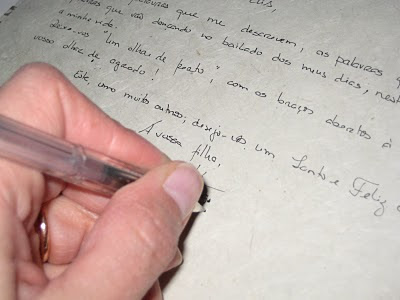 palavras que me descrevem, as palavras q
que vão dançando no bailado dos meus dias, nest
a minha vida.
Deixo-vos "um olhar de perto", com os braços abertos à
vossa dose de agrado!
Este, como muitos outros, desejo-vos um Santo e Feliz
A vossa filha,